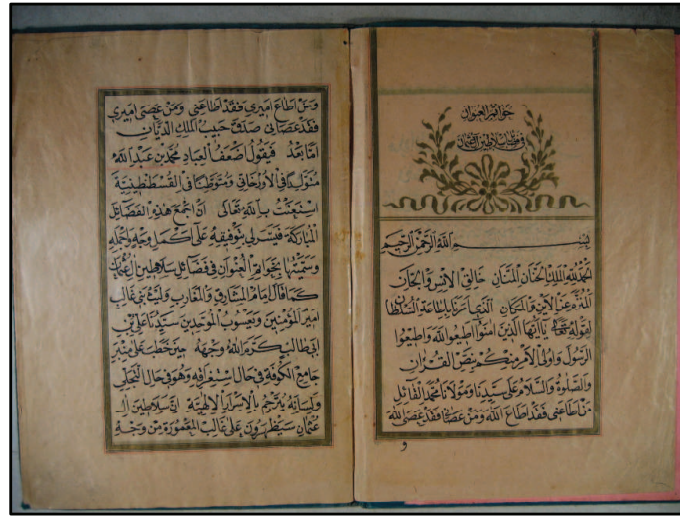 خواتم العنوان
في فضائل سلاطين آل عثمان
بسم الله الرحمن الرحيم
الحمد لله الملك الحنان المنان خالق الانس والجان
المنزه عن الاين والمكان الذي امرنا باطاعة السلطان
لقوله تعالى يا ايها الذين امنوا اطيعوا الله واطيعوا
الرسول واولى الامر منكم بنص القران
والصلوة والسلام على سيدنا ومولانا محمد القائل
من اطاعني فقد اطاع الله ومن عصاني فقد عصى الله
و
ومن اطاع اميري فقد اطاعني ومن عصى اميري
فقد عصاني صدق حبيب الملك الديان
اما بعد فيقول ضعف العباد محمد بن عبد الله
متوليد في الاورخاني ومتوطنا في القسطنطينية
استعنت بالله تعالى ان اجمع هذه الفضائل
المباركة فيسر لي بتوفيقه على اكمل وجه واجمله
وسميتها بخواتم العنوان في فضائل سلاطين ال عثمان
كما قال امام المشارق والمغارب وليث بني غالب
امير المؤمنين ويعسوب الموحدين سيدنا علي بن
ابي طالب كرم الله وجهه حين خطب على منبر
جامع الكوفة في حال استغراقه وهو في حال التجلي
ولسانه يترجم بالاسرار الالهية ان سلاطين ال
عثمان سيظهرون على غالب المعمورة من وجه